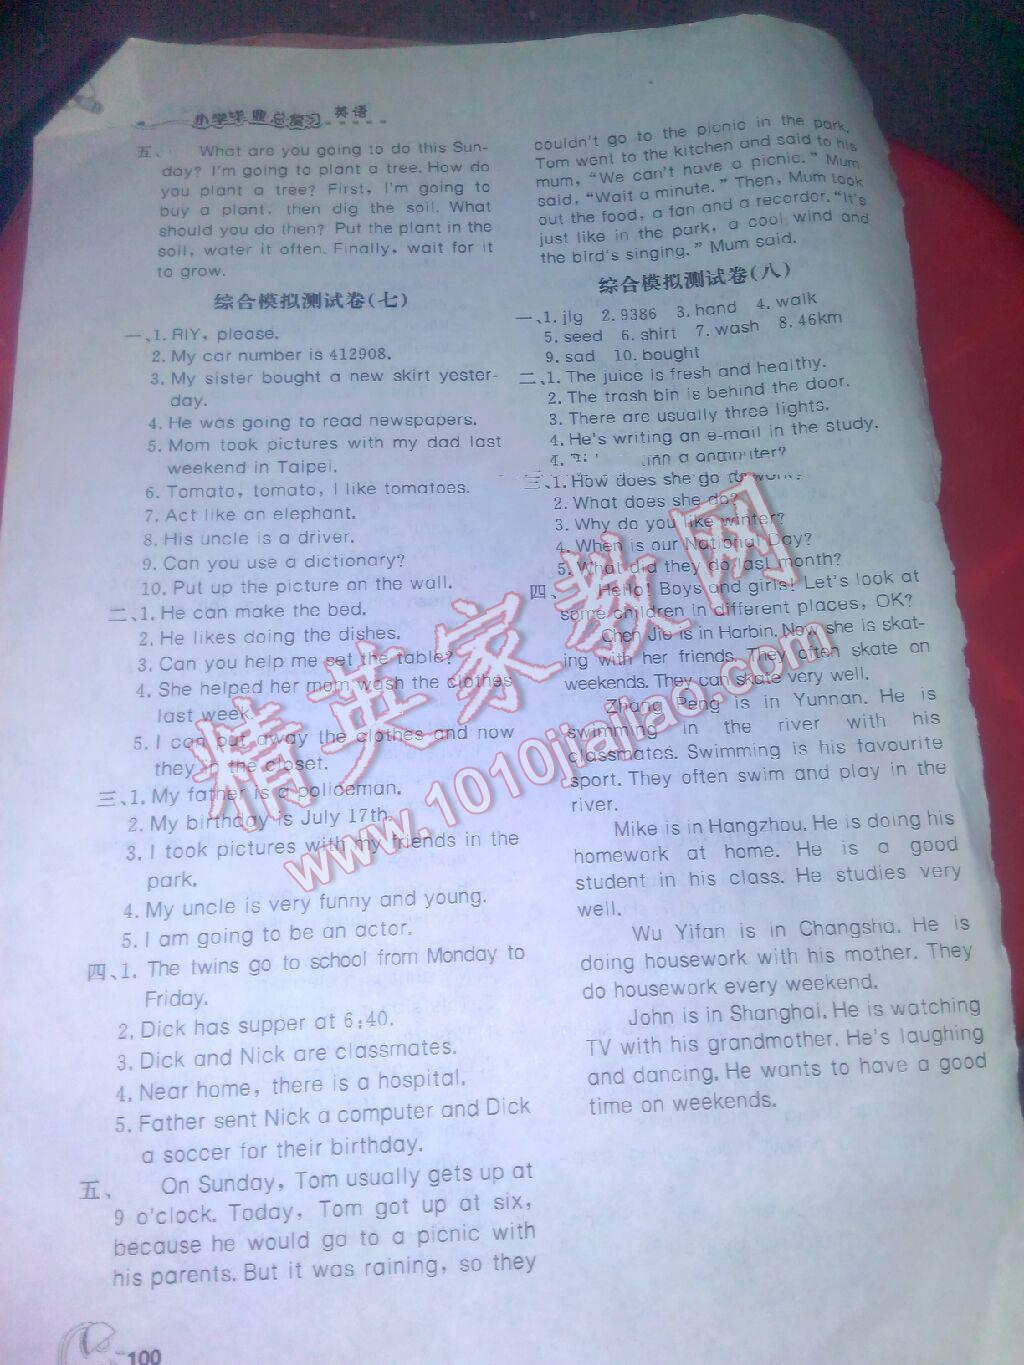 小学毕业总复习 英语
五、 What are you going to do this Sun-
day? I'm going to plant a tree. How do
you plant a tree? First, I'm going to
buy a plant, then dig the soil. What
should you do then? Put the plant in the
soil, water it often. Finally, wait for it
to grow.
综合模拟测试卷(七)
一、1. RIY, please.
2. My car number is 412908.
3. My sister bought a new skirt yester-
day.
4. He was going to read newspapers.
5. Mom took pictures with my dad last
weekend in Taipei.
6. Tomato, tomato, I like tomatoes.
7. Act like an elephant.
8. His uncle is a driver.
9. Can you use a dictionary?
10. Put up the picture on the wall.
二、1. He can make the bed.
2. He likes doing the dishes.
3. Can you help me set the table?
4. She helped her mom wash the clothes
last week.
5. I can put away the clothes and now
they in the closet.
三、1. My father is a policeman.
2. My birthday is July 17th.
3. I took pictures with my friends in the
park.
4. My uncle is very funny and young.
5. I am going to be an actor.
四、1. The twins go to school from Monday to
Friday.
2. Dick has supper at 6:40.
3. Dick and Nick are classmates.
4. Near home, there is a hospital.
5. Father sent Nick a computer and Dick
a soccer for their birthday.
五、 On Sunday, Tom usually gets up at
9 o'clock. Today, Tom got up at six,
because he would go to a picnic with
his parents. But it was raining, so they
couldn't go to the picnic in the park.
Tom went to the kitchen and said to his
mum, "We can't have a picnic." Mum
said, "Wait a minute." Then, Mum took
out the food, a fan and a recorder. "It's
just like in the park, a cool wind and
the bird's singing." Mum said.
综合模拟测试卷(八)
一、1. jlg 2. 9386 3. hand 4. walk
5. seed 6. shirt 7. wash 8. 46km
9. sad 10. bought
二、1. The juice is fresh and healthy.
2. The trash bin is behind the door.
3. There are usually three lights.
4. He's writing an e-mail in the study.
4. a computer?
三、1. How does she go to work?
2. What does she do?
3. Why do you like winter?
4. When is our National Day?
5. What did they do last month?
四、 Hello! Boys and girls! Let's look at
some children in different places, OK?
Chen Jie is in Harbin. Now she is skat-
ing with her friends. They often skate on
weekends. They can skate very well.
Zhang Peng is in Yunnan. He is
swimming in the river with his
classmates. Swimming is his favourite
sport. They often swim and play in the
river.
Mike is in Hangzhou. He is doing his
homework at home. He is a good
student in his class. He studies very
well.
Wu Yifan is in Changsha. He is
doing housework with his mother. They
do housework every weekend.
John is in Shanghai. He is watching
TV with his grandmother. He's laughing
and dancing. He wants to have a good
time on weekends.
精英家教网
www.1010jiajiao.com
100